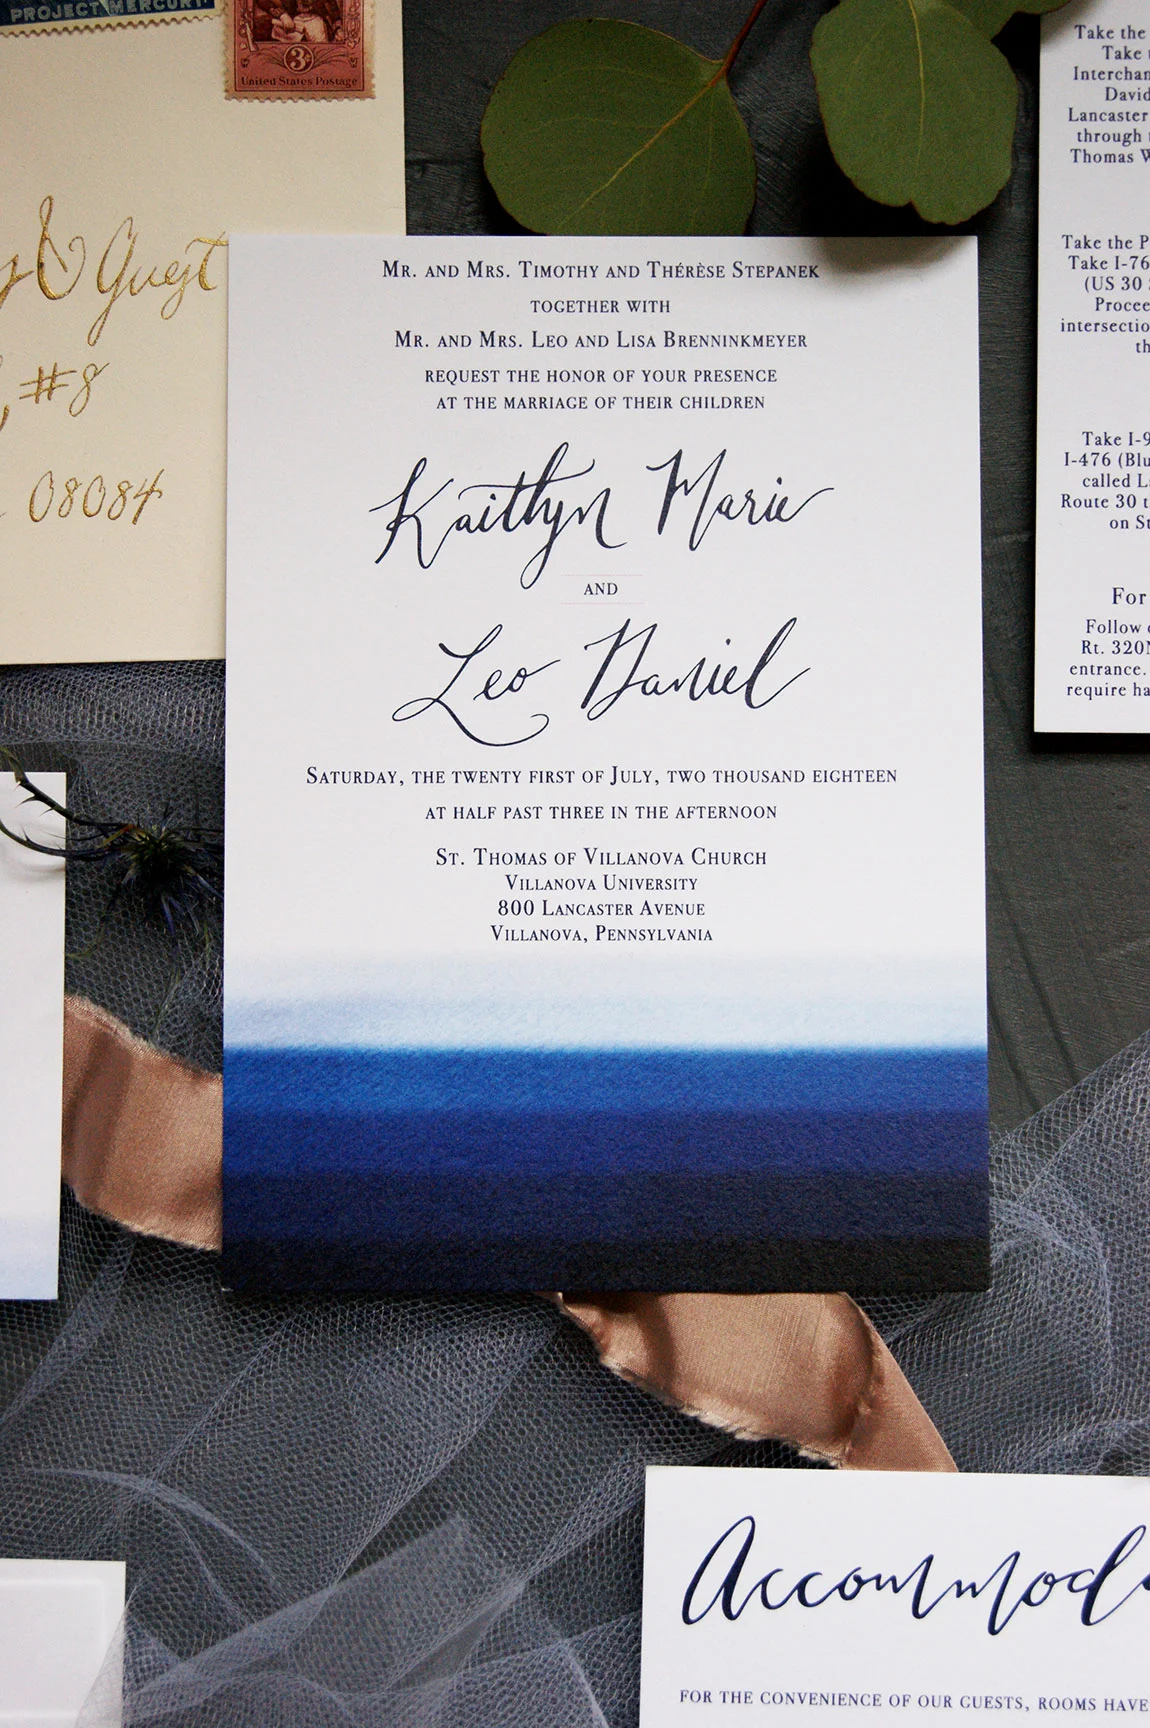 PROJECT MERCURY
3¢
United States Postage
& Guest
, #8
08084
Mr. and Mrs. Timothy and Thérèse Stepanek
together with
Mr. and Mrs. Leo and Lisa Brenninkmeyer
request the honor of your presence
at the marriage of their children
Kaitlyn Marie
and
Leo Daniel
Saturday, the twenty first of July, two thousand eighteen
at half past three in the afternoon
St. Thomas of Villanova Church
Villanova University
800 Lancaster Avenue
Villanova, Pennsylvania
Take the
Take
Interchan
David
Lancaster
through
Thomas W
Take the P
Take I-76
(US 30
Procee
intersectio
th
Take I-9
I-476 (Blu
called L
Route 30 t
on St
For
Follow
Rt. 320N
entrance.
require ha
Accommod
for the convenience of our guests, rooms have